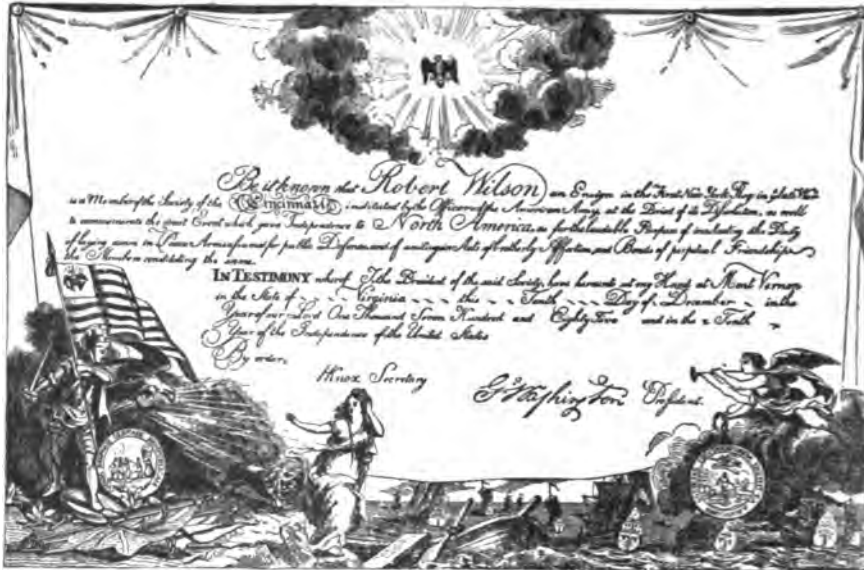 Be it known that Robert Wilson an Ensign in the First New York Reg in the late War
is a Member of the Society of the Cincinnati; instituted by the Officers of the American Army, at the Period of its Dissolution, as well
to commemorate the great Event which gave Independence to North America, as for the laudable Purpose of inculcating the Duty
of laying down in Peace Arms assumed for public Defence, and of uniting in Acts of brotherly Affection, and Bonds of perpetual Friendship
the Members constituting the same.
IN TESTIMONY whereof I, the President of the said Society, have hereunto set my Hand at Mount Vernon
in the State of Virginia this Tenth Day of December in the
Year of our Lord One Thousand Seven Hundred and Eighty Five and in the Tenth
Year of the Independence of the United States
By order,
HKnox Secretary
Go Washington President.